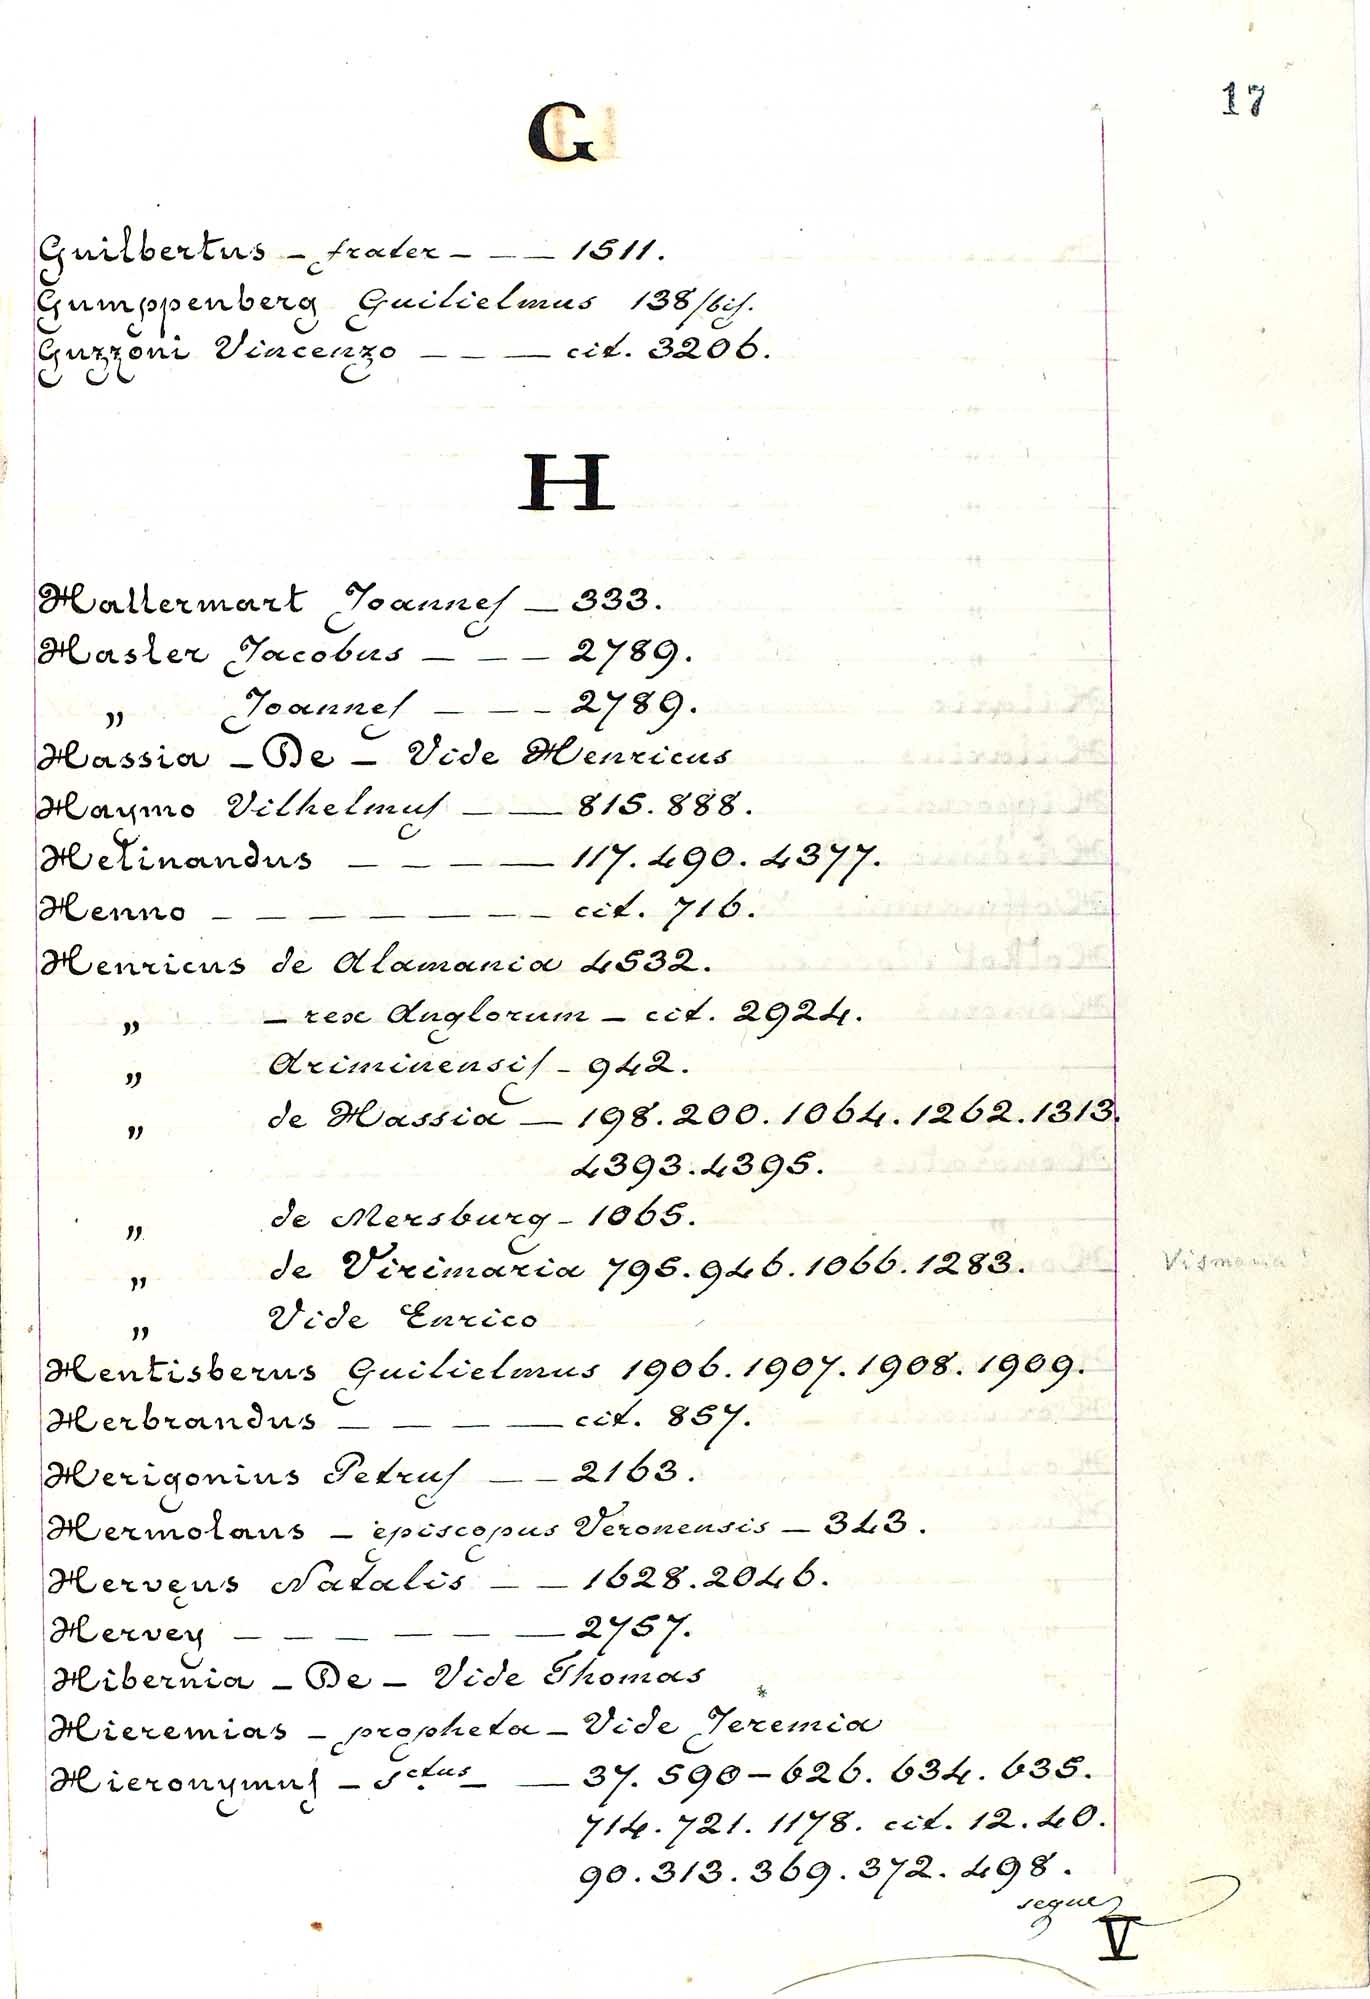 17
G
Guilbertus - frater - - - 1511.
Gumppenberg Guilielmus 138/bis.
Guzzoni Vincenzo - - - cit. 3206.
H
Hallermart Joannes - 333.
Hasler Jacobus - - - 2789.
„ Joannes - - - 2789.
Hassia - De - Vide Henricus
Haymo Vilhelmus - - 815. 888.
Helinandus - - - - 117. 490. 4377.
Henno - - - - - - - cit. 716.
Henricus de Alamania 4532.
„ - rex Anglorum - cit. 2924.
„ Ariminensis - 942.
„ de Hassia - 198. 200. 1064. 1262. 1313.
4393. 4395.
„ de Mersburg - 1065.
„ de Virimaria 795. 946. 1066. 1283. Vismaria!
„ Vide Enrico
Hentisberus Guilielmus 1906. 1907. 1908. 1909.
Herbrandus - - - - cit. 857.
Herigonius Petrus - - 2163.
Hermolaus - episcopus Veronensis - 343.
Herveus Natalis - - 1628. 2046.
Hervey - - - - - - 2757.
Hibernia - De - Vide Thomas
Hieremias - propheta - Vide Jeremia
Hieronymus - Sctus - - 37. 590-626. 634. 635.
714. 721. 1178. cit. 12. 40.
90. 313. 369. 372. 498.
segue
V